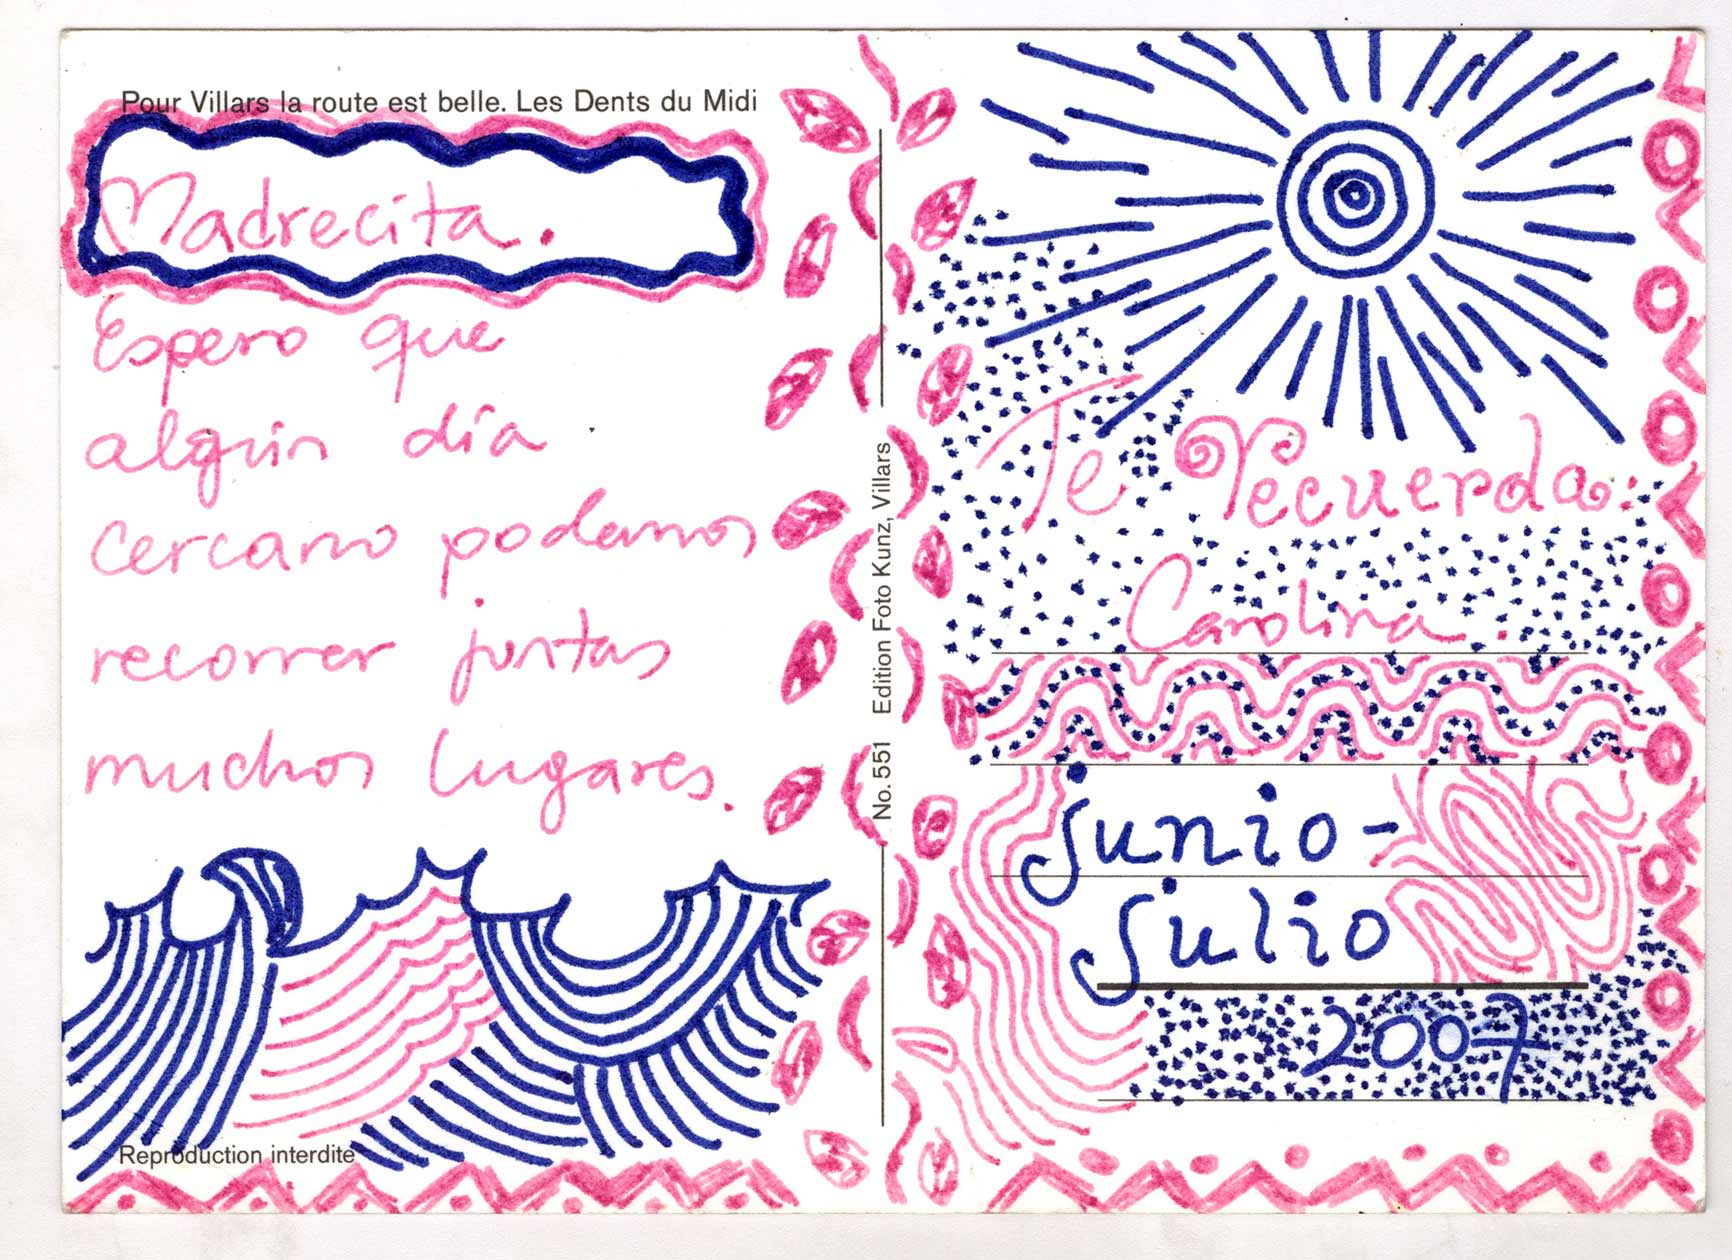 Pour Villars la route est belle. Les Dents du Midi
Madrecita.
Espero que
algún día
cercano podamos
recorrer juntas
muchos lugares.
Reproduction interdite
No. 551 Edition Foto Kunz, Villars
Te recuerda:
Carolina.
Junio-
Julio
2007